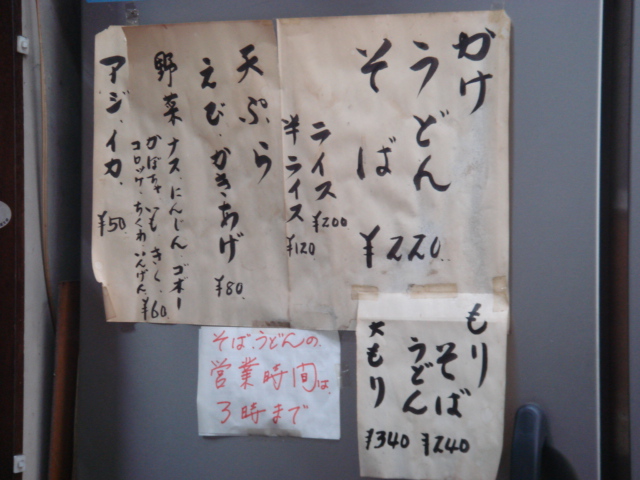 かけ
うどん
そば
¥220.
ライス ¥200
半ライス ¥120
天ぷら
えび.かきあげ ¥80.
野菜 ナス.にんじん.ゴボー
かぼちゃ.いも きく.
コロッケ.ちくわ いんげん ¥60.
アジ.イカ. ¥50.
もり
そば ¥240
うどん
大もり ¥340
そば.うどんの
営業時間は.
3時まで